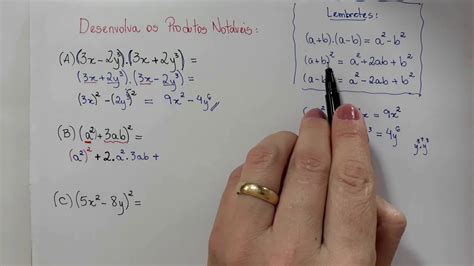 Desenvolva os Produtos Notáveis:
(A) (3x - 2y³).(3x + 2y³) =
(3x + 2y³).(3x - 2y³) =
(3x)² - (2y³)² = 9x² - 4y⁶
(B) (a² + 3ab)² =
(a²)² + 2.a².3ab +
(C) (5x² - 8y)² =
Lembretes:
(a+b).(a-b) = a² - b²
(a+b)² = a² + 2ab + b²
(a-b)² = a² - 2ab + b²
= 9x²
= 4y⁶
y³⁺³
y³.y³